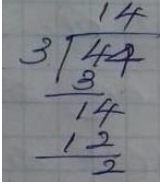 14
3 44
3
14
12
2